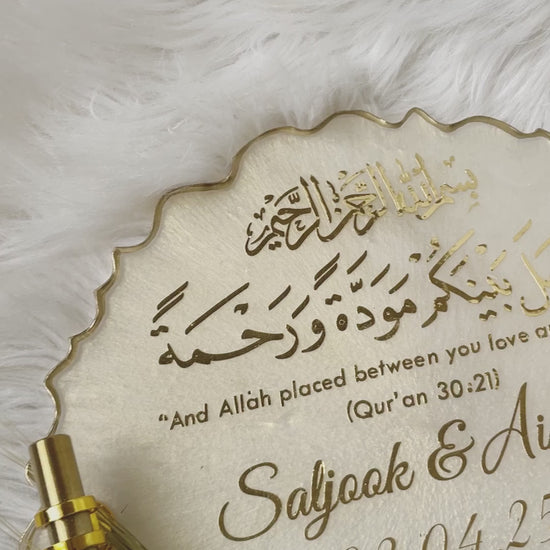 بسم الله الرحمن الرحيم
بَيْنَكُم مَّوَدَّةً وَرَحْمَةً
“And Allah placed between you love
(Qur'an 30:21)
Saljook &
04.25